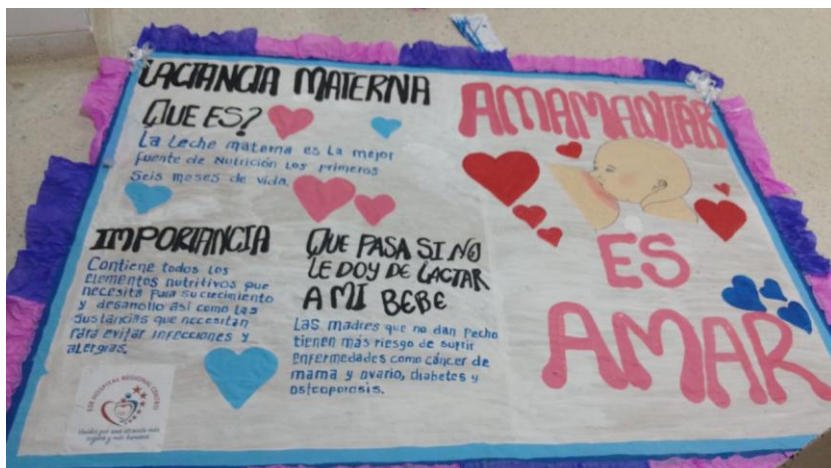 LACTANCIA MATERNA
QUE ES?
La Leche materna es La mejor
fuente de Nutrición Los primeros
Seis meses de vida.
IMPORTANCIA
Contiene todos Los
Elementos nutritivos que
necesita para su crecimiento
y desarrollo así como Las
Sustancias que necesitan
Para evitar infecciones y
alergias.
ESE HOSPITAL REGIONAL CENTRO
Unidos por una atención más
segura y más humana
QUE PASA SI NO
LE DOY DE LACTAR
A MI BEBE
LAS madres que no dan pecho
tienen más riesgo de sufrir
Enfermedades como cáncer de
mama y ovario, diabetes y
osteoporosis.
AMAMANTAR
ES
AMAR